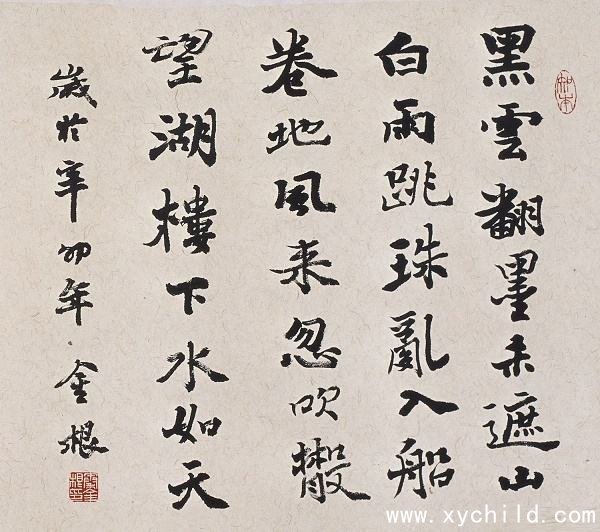 知本
黑雲翻墨未遮山
白雨跳珠亂入船
卷地風来忽吹散
望湖樓下水如天
歲於辛卯年 金根
www.xychild.com